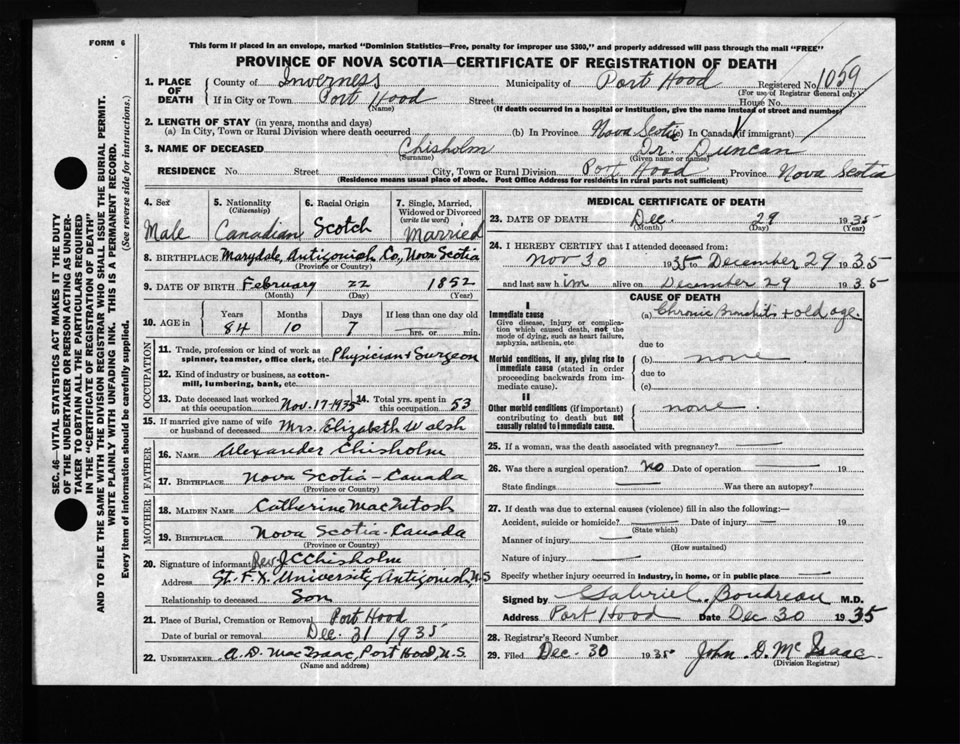 FORM 6
This form if placed in an envelope, marked "Dominion Statistics—Free, penalty for improper use $300," and properly addressed will pass through the mail "FREE"
PROVINCE OF NOVA SCOTIA—CERTIFICATE OF REGISTRATION OF DEATH
1. PLACE OF DEATH County of Inverness Municipality of Port Hood Registered No. 1059
(For use of Registrar General only)
If in City or Town Port Hood Street House No.
(Name) (If death occurred in a hospital or institution, give the name instead of street and number)
2. LENGTH OF STAY (in years, months and days)
(a) In City, Town or Rural Division where death occurred (b) In Province Nova Scotia (c) In Canada (if immigrant)
3. NAME OF DECEASED Chisholm Dr. Duncan
(Surname) (Given name or names)
RESIDENCE No. Street City, Town or Rural Division Port Hood Province Nova Scotia
(Residence means usual place of abode. Post Office Address for residents in rural parts not sufficient)
4. Sex Male
5. Nationality (Citizenship) Canadian
6. Racial Origin Scotch
7. Single, Married, Widowed or Divorced (write the word) Married
8. BIRTHPLACE Marydale, Antigonish Co., Nova Scotia
(Province or Country)
9. DATE OF BIRTH February 22 1852
(Month) (Day) (Year)
10. AGE in Years Months Days If less than one day old
84 10 7 hrs. or min.
OCCUPATION
11. Trade, profession or kind of work as spinner, teamster, office clerk, etc. Physician & Surgeon
12. Kind of industry or business, as cotton-mill, lumbering, bank, etc.
13. Date deceased last worked at this occupation Nov. 17-1935 14. Total yrs. spent in this occupation 53
15. If married give name of wife or husband of deceased Mrs. Elizabeth Walsh
FATHER
16. NAME Alexander Chisholm
17. BIRTHPLACE Nova Scotia-Canada
(Province or Country)
MOTHER
18. MAIDEN NAME Catherine MacIntosh
19. BIRTHPLACE Nova Scotia-Canada
(Province or Country)
20. Signature of informant Rev J C Chisholm
Address St. F. X. University, Antigonish, N.S
Relationship to deceased Son
21. Place of Burial, Cremation or Removal Port Hood
Date of burial or removal Dec. 31 1935
22. UNDERTAKER A. D. MacIsaac, Port Hood, N.S.
(Name and address)
MEDICAL CERTIFICATE OF DEATH
23. DATE OF DEATH Dec. 29 1935
(Month) (Day) (Year)
24. I HEREBY CERTIFY that I attended deceased from:
Nov 30 1935 to December 29 1935
and last saw him alive on December 29 1935
CAUSE OF DEATH
I
Immediate cause (a) Chronic Bronchitis + old age.
Give disease, injury or complication which caused death, not the mode of dying, such as heart failure, asphyxia, asthenia, etc.
due to
Morbid conditions, if any, giving rise to immediate cause (stated in order proceeding backwards from immediate cause). (b) none
due to
(c)
II
Other morbid conditions (if important) contributing to death but not causally related to immediate cause. none
25. If a woman, was the death associated with pregnancy?
26. Was there a surgical operation? No Date of operation 19
State findings Was there an autopsy?
27. If death was due to external causes (violence) fill in also the following:—
Accident, suicide or homicide? Date of injury 19
(State which)
Manner of injury
(How sustained)
Nature of injury
Specify whether injury occurred in industry, in home, or in public place
Signed by Gabriel Boudreau M.D.
Address Port Hood Date Dec 30 1935
28. Registrar's Record Number
29. Filed Dec-30 1935 John D. McIsaac
(Division Registrar)
SEC. 46—VITAL STATISTICS ACT MAKES IT THE DUTY
OF THE UNDERTAKER OR PERSON ACTING AS UNDER-
TAKER TO OBTAIN ALL THE PARTICULARS REQUIRED
IN THE "CERTIFICATE OF REGISTRATION OF DEATH"
AND TO FILE THE SAME WITH THE DIVISION REGISTRAR WHO SHALL ISSUE THE BURIAL PERMIT.
WRITE PLAINLY WITH UNFADING INK. THIS IS A PERMANENT RECORD.
Every item of information should be carefully supplied. (See reverse side for instructions.)